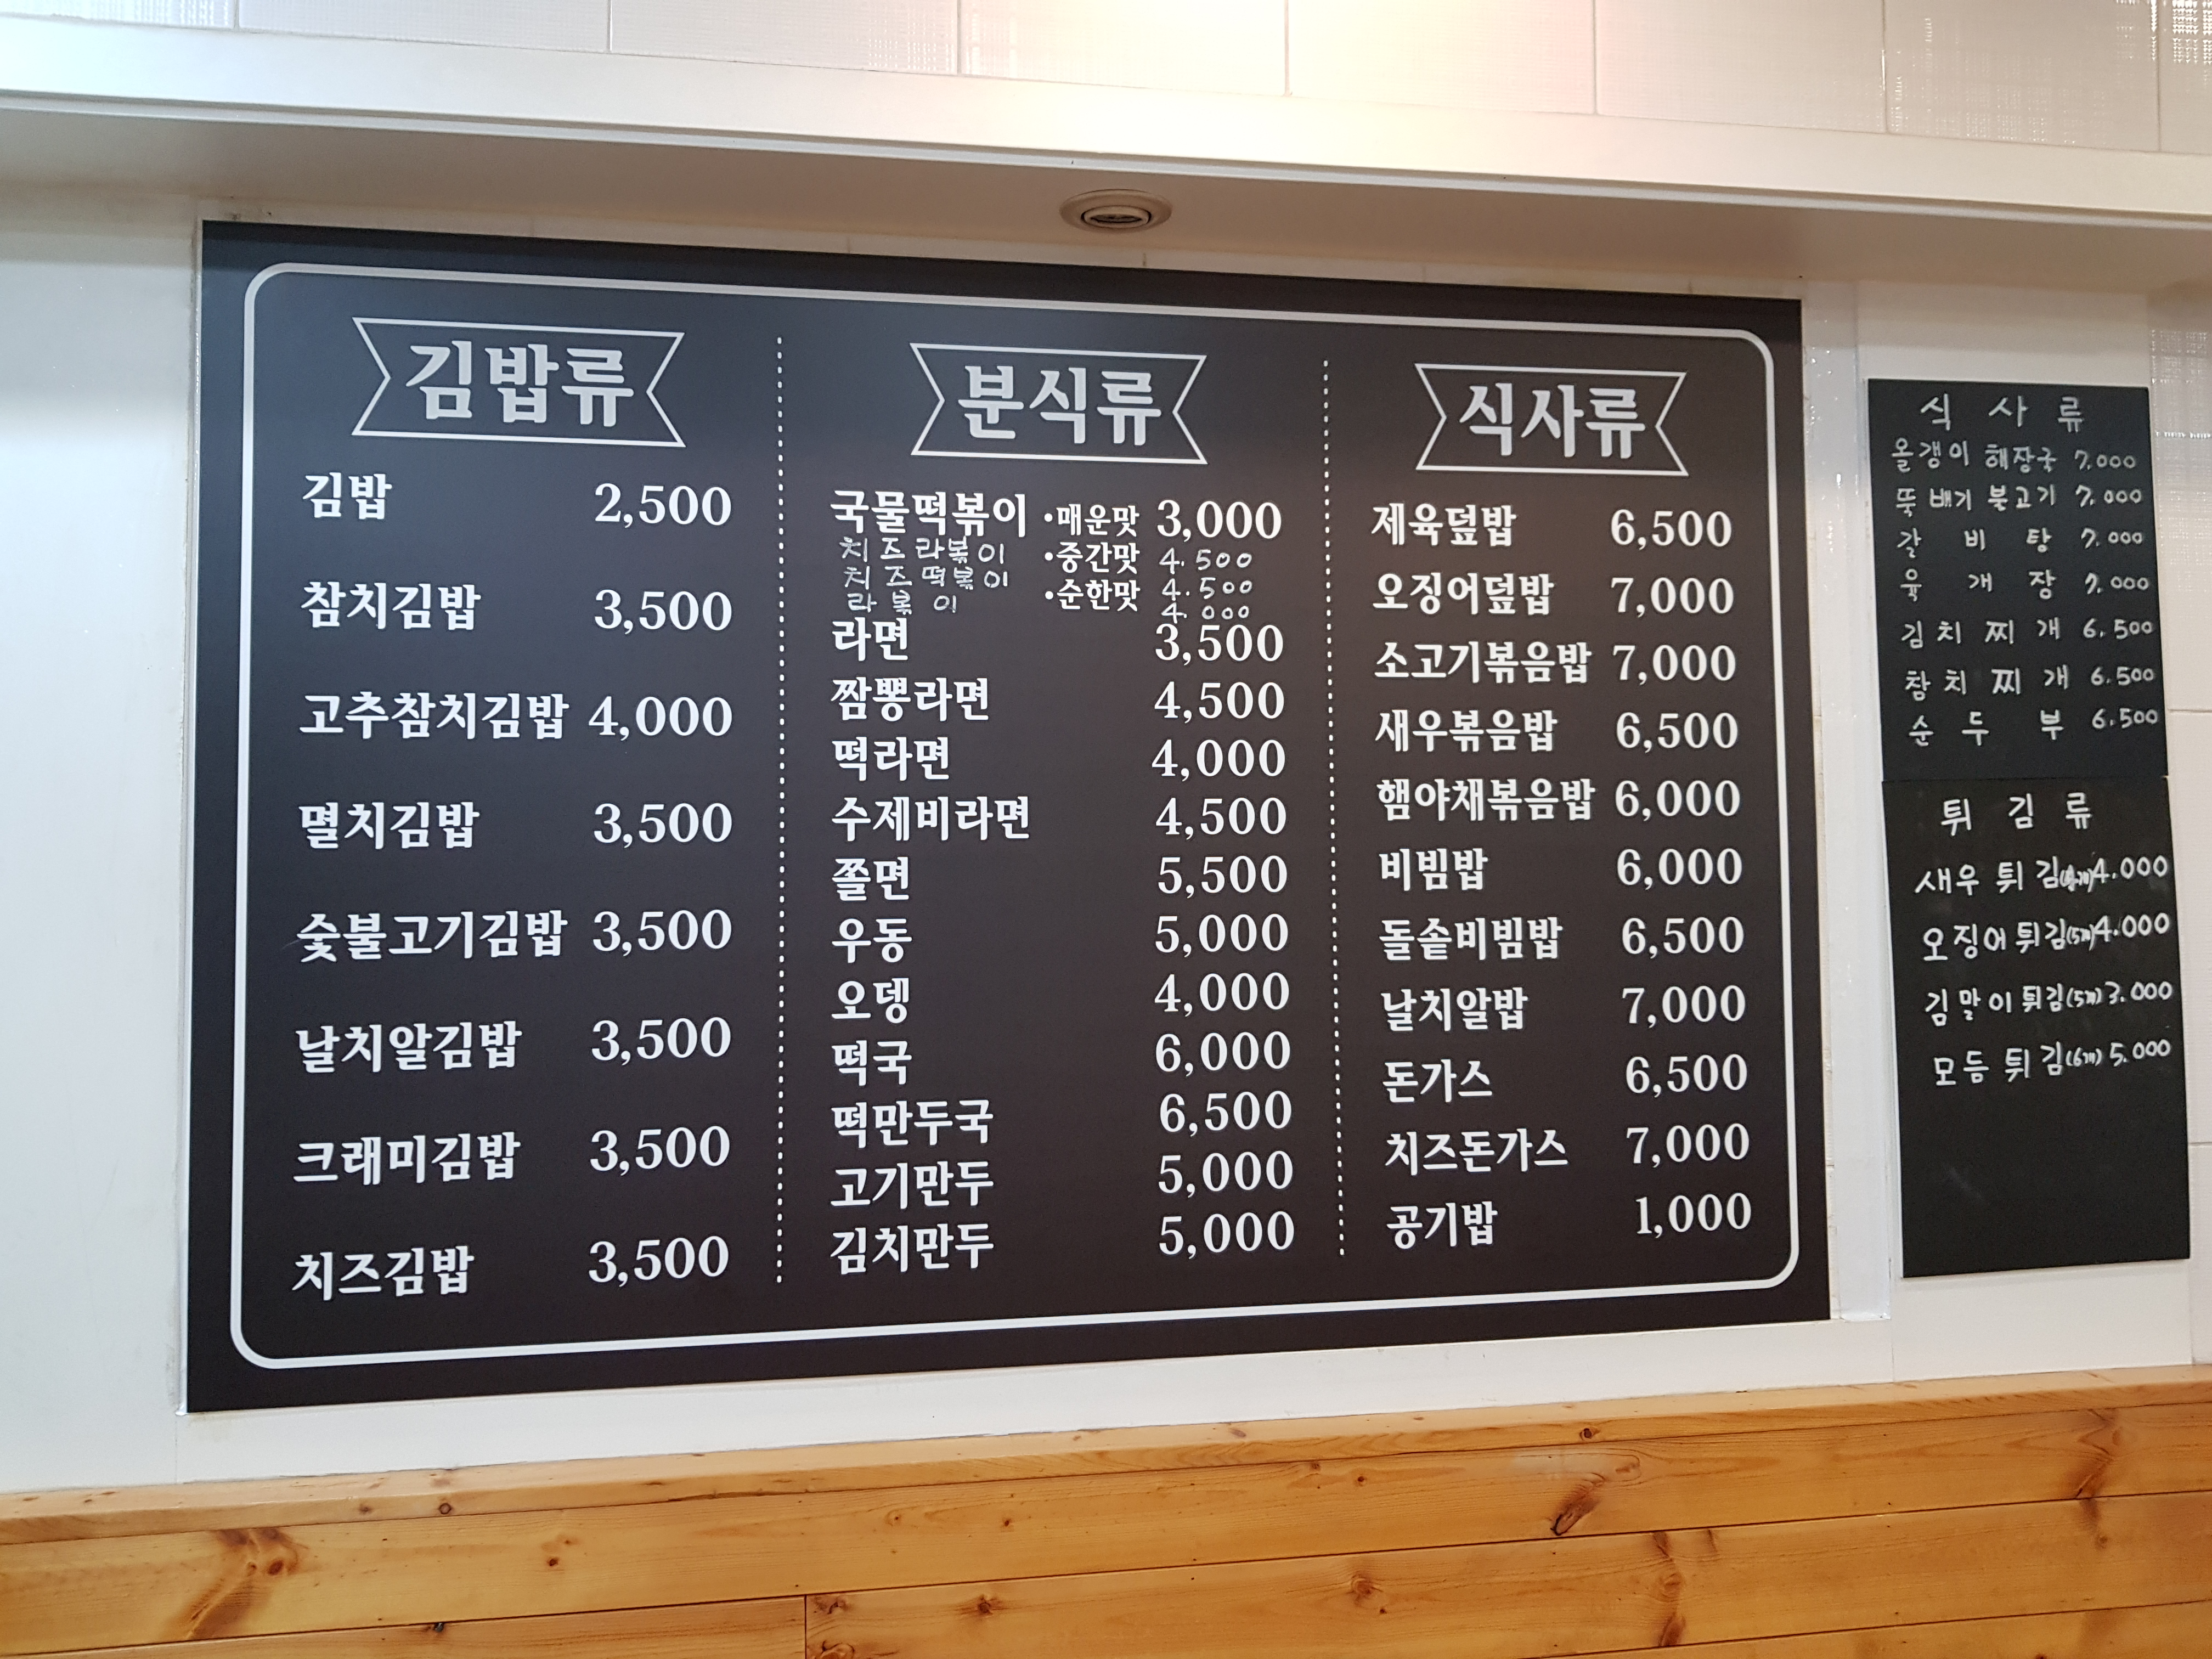 김밥류
김밥 2,500
참치김밥 3,500
고추참치김밥 4,000
멸치김밥 3,500
숯불고기김밥 3,500
날치알김밥 3,500
크래미김밥 3,500
치즈김밥 3,500
분식류
국물떡볶이 •매운맛 3,000
치즈라볶이 •중간맛 4.500
치즈떡볶이 •순한맛 4.500
라볶이 4.000
라면 3,500
짬뽕라면 4,500
떡라면 4,000
수제비라면 4,500
쫄면 5,500
우동 5,000
오뎅 4,000
떡국 6,000
떡만두국 6,500
고기만두 5,000
김치만두 5,000
식사류
제육덮밥 6,500
오징어덮밥 7,000
소고기볶음밥 7,000
새우볶음밥 6,500
햄야채볶음밥 6,000
비빔밥 6,000
돌솥비빔밥 6,500
날치알밥 7,000
돈가스 6,500
치즈돈가스 7,000
공기밥 1,000
식 사 류
올갱이 해장국 7.000
뚝배기 불고기 7.000
갈 비 탕 7.000
육 개 장 7.000
김 치 찌 개 6.500
참 치 찌 개 6.500
순 두 부 6.500
튀 김 류
새우 튀김 4.000
오징어 튀김(5개) 4.000
김말이 튀김(5개) 3.000
모듬 튀김(6개) 5.000